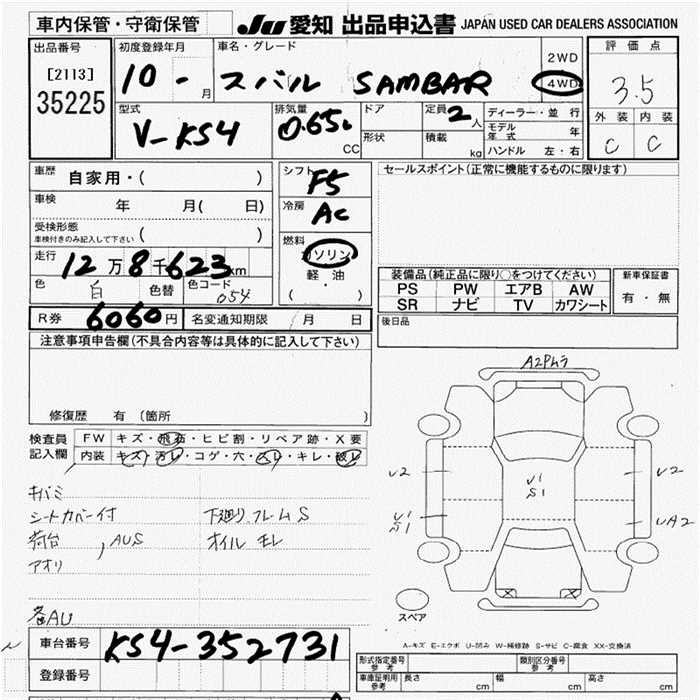 車内保管・守衛保管 JU 愛知 出品申込書 JAPAN USED CAR DEALERS ASSOCIATION
出品番号
[2113]
35225
初度登録年月
10 - 月
車名・グレード
スバル SAMBAR
2WD
4WD
評価点
3.5
外装 内装
C C
型式
V-KS4
排気量
0.65L
CC
ドア
形状
定員 2人
積載 kg
ディーラー・並行
モデル年式 年
ハンドル 左・右
車歴 自家用・( )
車検 年 月( 日)
受検形態 ( )
車検付きのみ記入して下さい
走行 12万8千623km
色 白 色替 色コード 054
シフト F5
冷房 AC
燃料
ガソリン
軽・油
( ・ )
セールスポイント(正常に機能するものに限ります)
装備品(純正品に限り○をつけてください)
PS PW エアB AW
SR ナビ TV カワシート
新車保証書
有・無
後日品
R券 6060円 名変通知期限 月 日
注意事項申告欄(不具合内容等は具体的に記入して下さい)
修復歴 有 (箇所 )
検査員記入欄
FW キズ・飛石・ヒビ割・リペア跡・X要
内装 キズ・汚レ・コゲ・穴・スレ・キレ・破レ
キバミ
シートカバー付 下廻り.フレームS
荷台 , AUS オイルモレ
アオリ
各AU
A2Pムラ
U2
U1
S1
U1
S1
U2
UA2
スペア
A-キズ E-エクボ U-凹み W-補修跡 S-サビ C-腐食 XX-交換済
車台番号 KS4-352731
登録番号
形式指定番号 参考
類別区分番号 参考
車庫証明用 参考 長さ cm 幅 cm 高さ cm